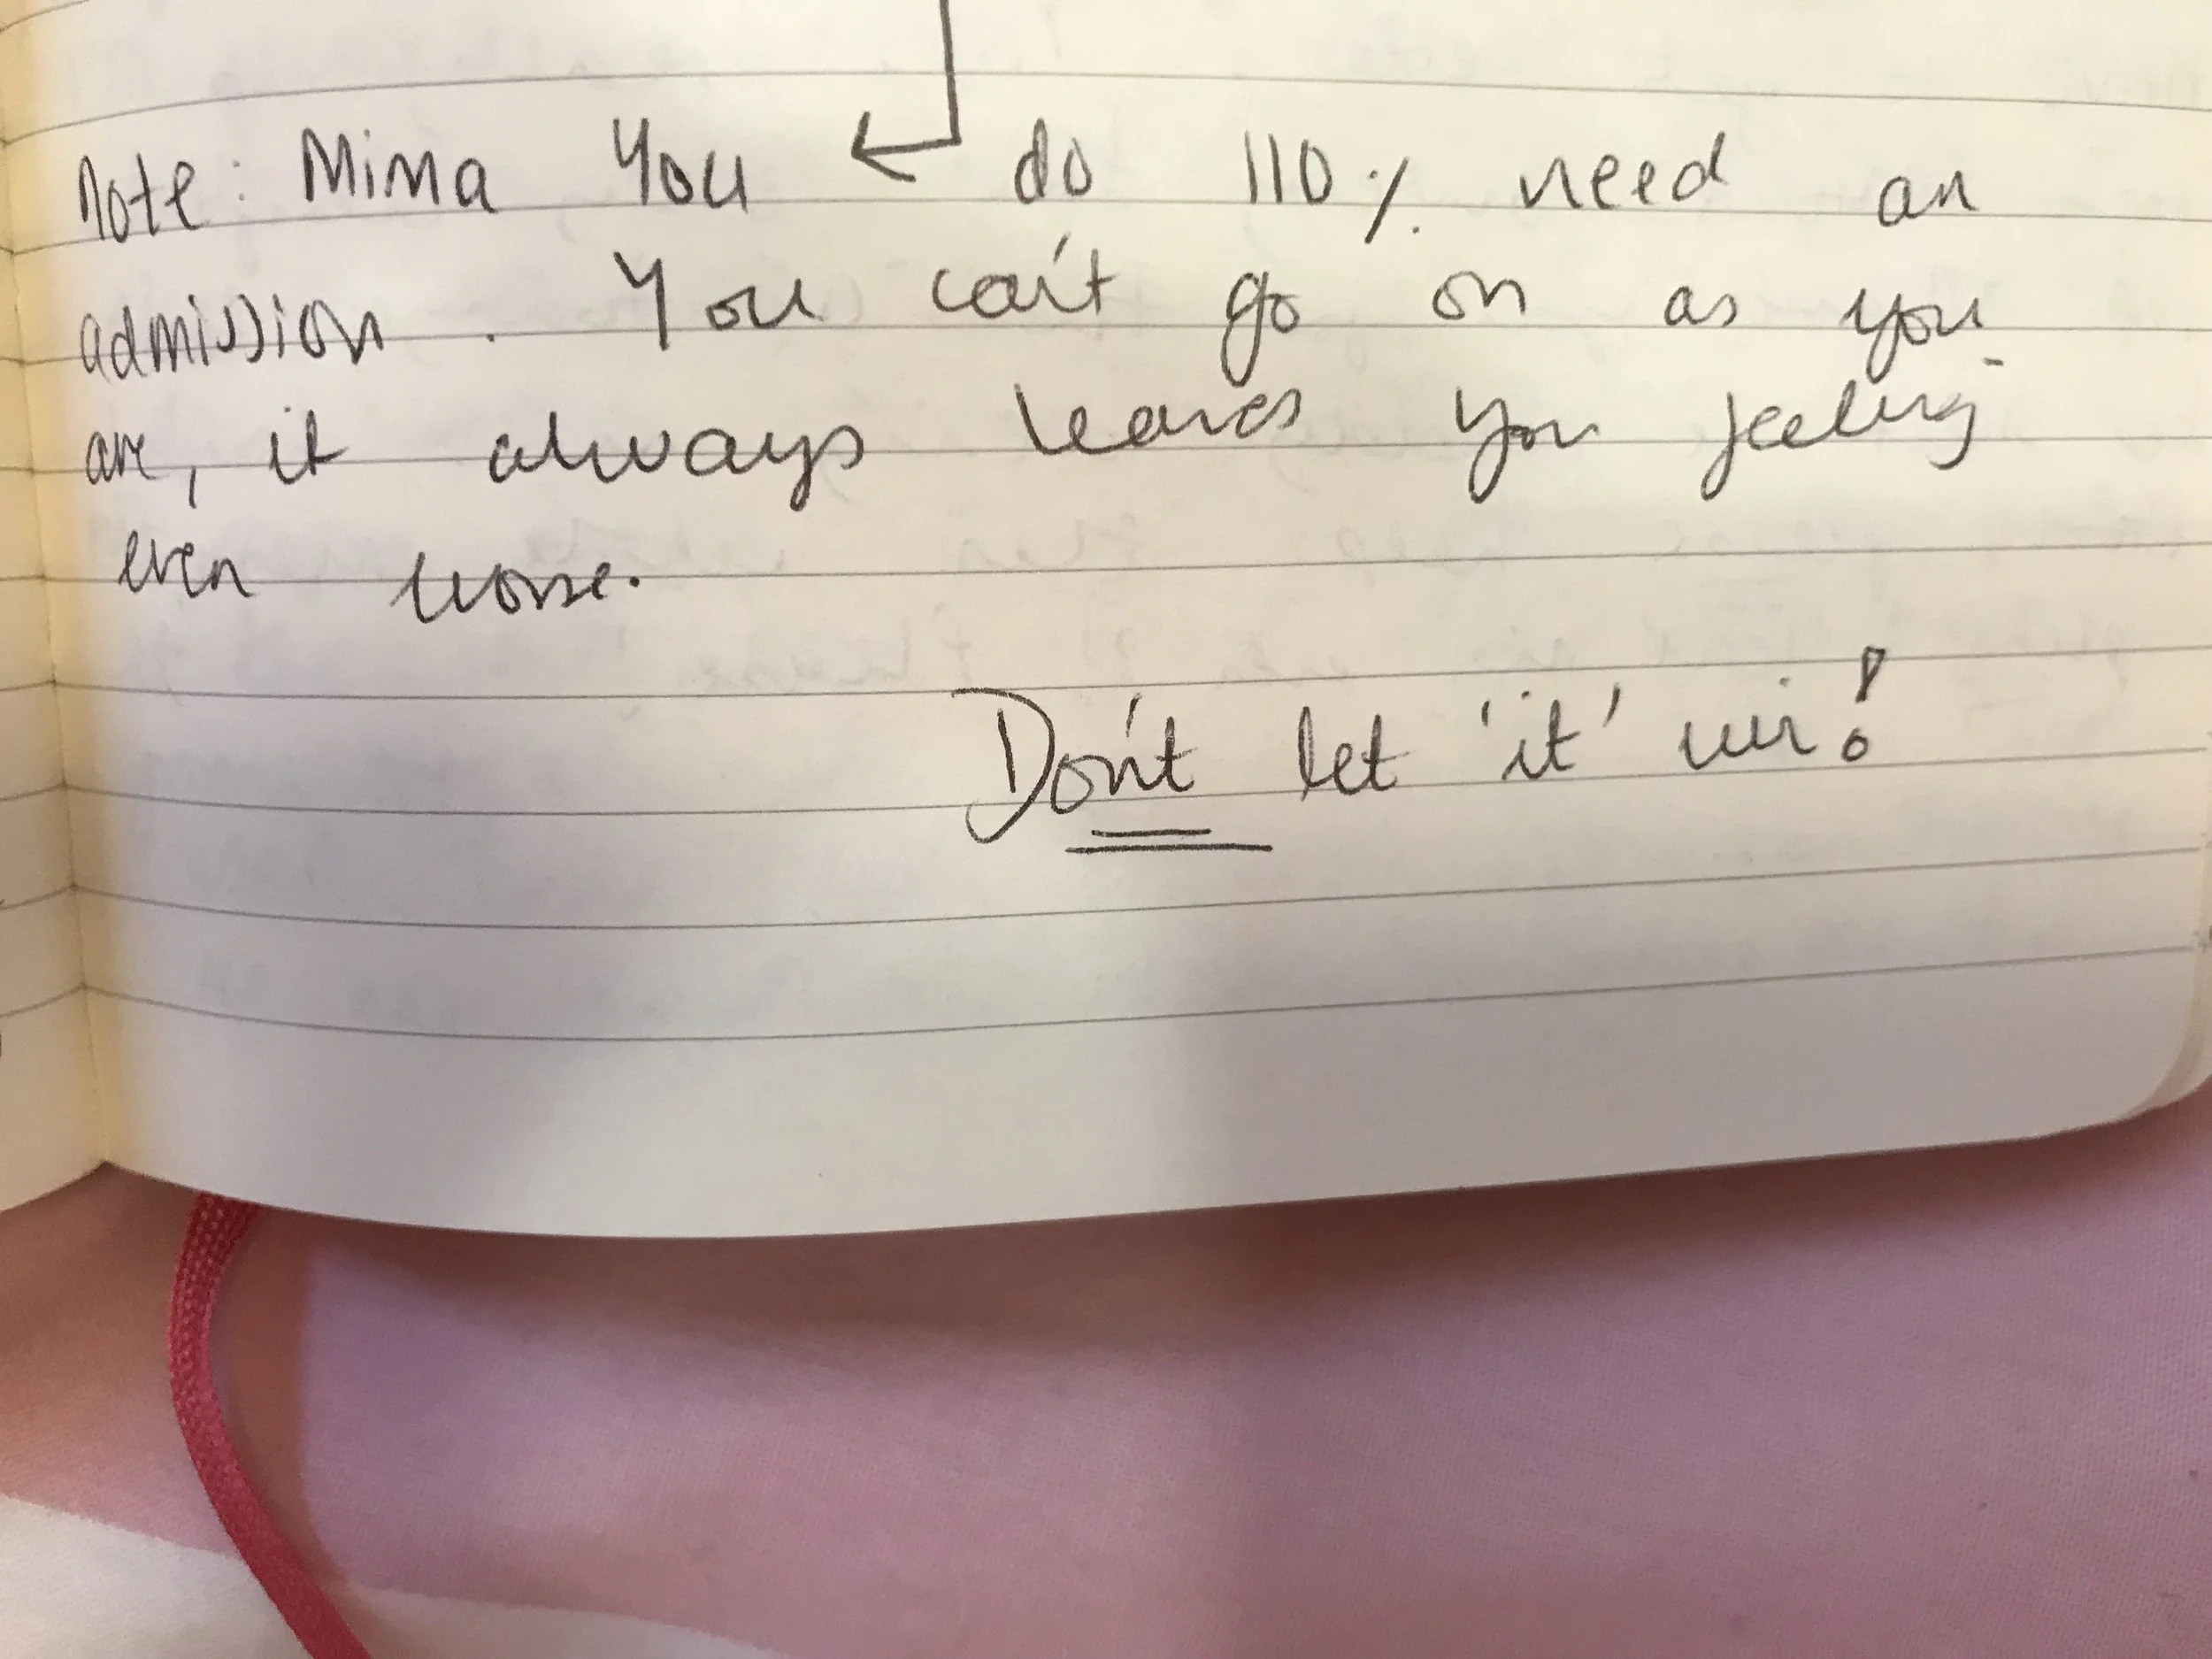 Note: Mima You do 110% need an
admission. You can't go on as you
are, it always leaves you feeling
even worse.
Don't let 'it' win!